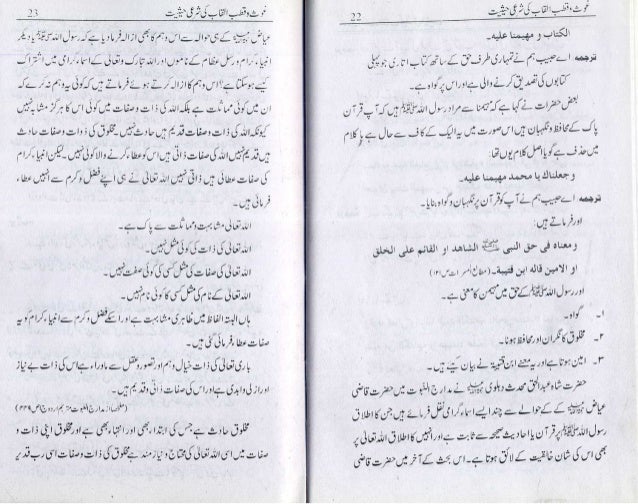 22
غوث و قطب القاب کی شرعی حیثیت
الکتاب و مهيمنا عليه۔
ترجمہ اے حبیب ہم نے تمہاری طرف حق کے ساتھ کتاب اتاری جو پہلی
کتابوں کی تصدیق کرنے والی ہے اور اس پر گواہ ہے۔
بعض حضرات نے کہا ہے کہ مہیمنا سے مراد رسول اللہ ﷺ ہیں کہ آپ قرآن
پاک کے محافظ و نگہبان ہیں اس صورت میں یہ الیک کے کاف سے حال ہے یا کلام
میں حذف ہے گویا اصل کلام یوں تھا:
و جعلناك يا محمد مهيمنا عليه۔
ترجمہ اے حبیب ہم نے آپ کو قرآن پر نگہبان و گواہ بنایا۔
اور فرماتے ہیں:
و معناه فی حق النبی ﷺ الشاهد او القائم علی الخلق
او الامین قاله ابن قتيبة۔ (مطالع المسرات ص ۱۲۱)
اور رسول اللہ ﷺ کے حق میں مہیمن کا معنی ہے۔
۱۔ گواہ۔
۲۔ مخلوق کا نگران اور محافظ ہونا۔
۳۔ امین ہونا ہے اور یہ معنے ابن قتیبہ نے بیان کیے ہیں۔
حضرت شاہ عبدالحق محدث دہلوی نے مدارج النبوت میں حضرت قاضی
عیاض کے حوالے سے چند ایسے اسماء گرامی نقل فرمائے ہیں جن کا اطلاق
رسول اللہ ﷺ پر قرآن یا احادیث صحیحہ سے ثابت ہے اور انہیں کا اطلاق اللہ تعالیٰ پر
بھی اس کی شان خالقیت کے لائق ہوتا ہے۔ اس بحث کے آخر میں حضرت قاضی
غوث و قطب القاب کی شرعی حیثیت
23
عیاض کے ہی حوالہ سے اس وہم کا بھی ازالہ فرما دیا ہے کہ رسول اللہ ﷺ یا دیگر
انبیاء کرام و رسل عظام کے ناموں اور اللہ تبارک و تعالیٰ کے اسماء گرامی میں اشتراک
کیسے ہو سکتا ہے؟ اس وہم کا ازالہ کرتے ہوئے فرماتے ہیں کہ کوئی یہ وہم نہ کرے کہ
ان میں کوئی مماثلت ہے بلکہ اللہ کی ذات و صفات میں کوئی اس کا ہرگز مشابہ نہیں
کیونکہ اللہ کی ذات و صفات قدیم ہیں حادث نہیں۔ مخلوق کی ذات و صفات حادث
ہیں قدیم نہیں اللہ کی صفات ذاتی ہیں اس کو عطاء کرنے والا کوئی نہیں۔ لیکن انبیاء کرام
کی صفات عطائی ہیں ذاتی نہیں اللہ تعالیٰ نے ہی اپنے فضل و کرم سے انہیں عطاء
فرمائی ہیں۔
اللہ تعالیٰ مشابہت و مماثلت سے پاک ہے۔
اللہ تعالیٰ کی ذات کی کوئی مثل نہیں۔
اللہ تعالیٰ کی صفات کی مثل کسی کی کوئی صفت نہیں۔
اللہ تعالیٰ کے نام کی مثل کسی کا کوئی نام نہیں۔
ہاں البتہ الفاظ میں ظاہری مشابہت ہے اور اسکے فضل و کرم سے انبیاء کرام کو یہ
صفات عطاء فرمائی گئی ہیں۔
باری تعالیٰ کی ذات خیال و وہم اور تصور و عقل سے ماوراء ہے اس کی ذات بے نیاز
اور ازلی و ابدی ہے اور اس کی صفات ذاتی و قدیم ہیں۔
(ملخصا از مدارج النبوت مترجم اردو ج ا ص ۴۳۹)
مخلوق حادث ہے جس کی ابتداء بھی اور انتہاء بھی ہے اور مخلوق اپنی ذات و
صفات میں اسی اللہ تعالیٰ کی محتاج و نیازمند ہے مخلوق کی ذات و صفات اسی رب قدیر